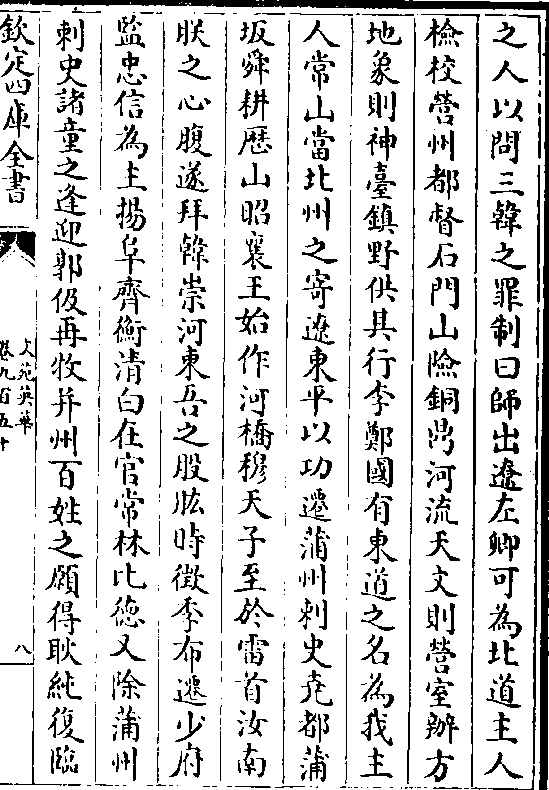 之人以問三韓之罪制曰師出遼左卿可為北道主人
檢校營州都督石門山險銅鼎河流天文則營室辦方
地象則神臺鎮野供其行李鄭國有東道之名為我主
人常山當北州之寄遼東平以功遷蒲州刺史堯都蒲
坂舜耕歴山昭襄王始作河橋穆天子至於雷首汝南
朕之心腹遂拜韓崇河東吾之股肱時徵季布遷少府
監忠信為主揚阜齊衡清白在官常林比德又除蒲州
刺史諸童之逢迎郭伋再牧并州百姓之願得耿純復臨
欽定四庫全書
文苑英華
卷九百五十
八